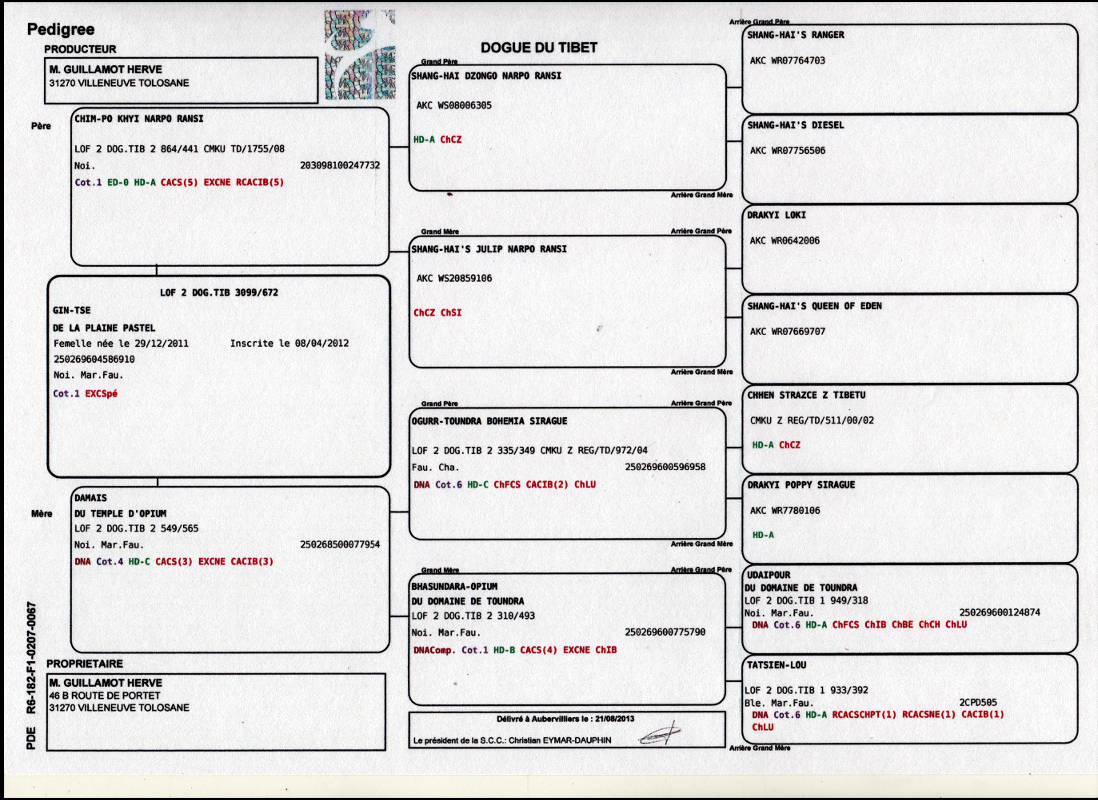 Pedigree
PRODUCTEUR
M. GUILLAMOT HERVE
31270 VILLENEUVE TOLOSANE
DOGUE DU TIBET
Père
CHIM-PO KHYI NARPO RANSI
LOF 2 DOG.TIB 2 864/441 CMKU TD/1755/08
Noi. 203098100247732
Cot.1 ED-0 HD-A CACS(5) EXCNE RCACIB(5)
LOF 2 DOG.TIB 3099/672
GIN-TSE
DE LA PLAINE PASTEL
Femelle née le 29/12/2011 Inscrite le 08/04/2012
250269604586910
Noi. Mar.Fau.
Cot.1 EXCSpé
Mère
DAMAIS
DU TEMPLE D'OPIUM
LOF 2 DOG.TIB 2 549/565
Noi. Mar.Fau. 250268500077954
DNA Cot.4 HD-C CACS(3) EXCNE CACIB(3)
PROPRIETAIRE
M. GUILLAMOT HERVE
46 B ROUTE DE PORTET
31270 VILLENEUVE TOLOSANE
PDE R6-182-F1-0207-0067
Grand Père
SHANG-HAI DZONGO NARPO RANSI
AKC WS08006305
HD-A ChCZ
Grand Mère
SHANG-HAI'S JULIP NARPO RANSI
AKC WS20859106
ChCZ ChSI
Grand Père
OGURR-TOUNDRA BOHEMIA SIRAGUE
LOF 2 DOG.TIB 2 335/349 CMKU Z REG/TD/972/04
Fau. Cha. 250269600596958
DNA Cot.6 HD-C ChFCS CACIB(2) ChLU
Grand Mère
BHASUNDARA-OPIUM
DU DOMAINE DE TOUNDRA
LOF 2 DOG.TIB 2 310/493
Noi. Mar.Fau. 250269600775790
DNAComp. Cot.1 HD-B CACS(4) EXCNE ChIB
Délivré à Aubervilliers le : 21/08/2013
Le président de la S.C.C.: Christian EYMAR-DAUPHIN
Arrière Grand Père
SHANG-HAI'S RANGER
AKC WR07764703
SHANG-HAI'S DIESEL
AKC WR07756506
Arrière Grand Mère
Arrière Grand Père
DRAKYI LOKI
AKC WR0642006
SHANG-HAI'S QUEEN OF EDEN
AKC WR07669707
Arrière Grand Mère
Arrière Grand Père
CHHEN STRAZCE Z TIBETU
CMKU Z REG/TD/511/00/02
HD-A ChCZ
DRAKYI POPPY SIRAGUE
AKC WR7780106
HD-A
Arrière Grand Mère
Arrière Grand Père
UDAIPOUR
DU DOMAINE DE TOUNDRA
LOF 2 DOG.TIB 1 949/318
Noi. Mar.Fau. 250269600124874
DNA Cot.6 HD-A ChFCS ChIB ChBE ChCH ChLU
TATSIEN-LOU
LOF 2 DOG.TIB 1 933/392
Ble. Mar.Fau. 2CPD505
DNA Cot.6 HD-A RCACSCHPT(1) RCACSNE(1) CACIB(1)
ChLU
Arrière Grand Mère